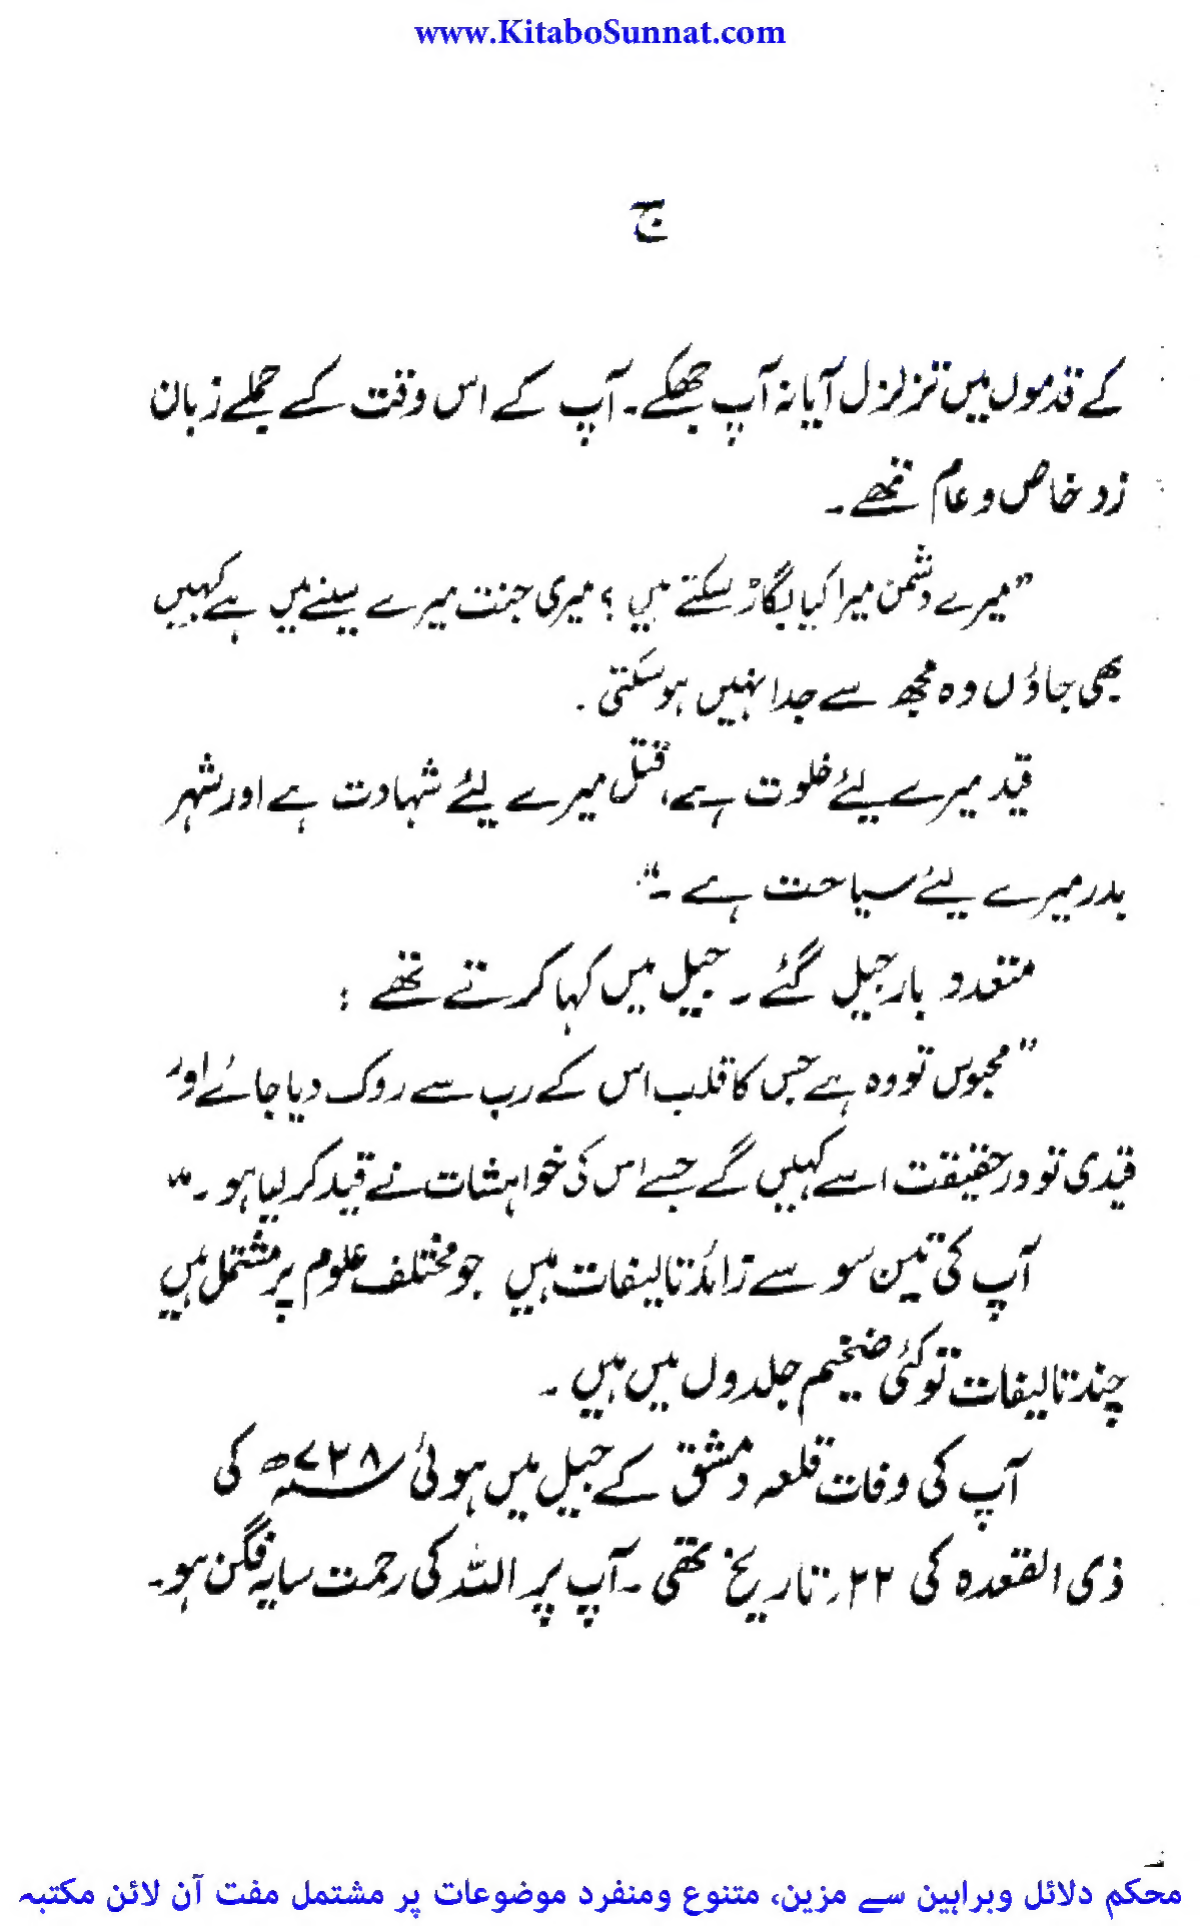 www.KitaboSunnat.com
ج
کے قدموں میں تزلزل آیا نہ آپ جھکے۔ آپ کے اس وقت کے جملے زبان
زد خاص و عام تھے۔
”میرے دشمن میرا کیا بگاڑ سکتے ہیں ؟ میری جنت میرے سینے میں ہے کہیں
بھی جاؤں وہ مجھ سے جدا نہیں ہو سکتی۔
قید میرے لئے خلوت ہے، قتل میرے لئے شہادت ہے اور شہر
بدر میرے لئے سیاحت ہے۔“
متعدد بار جیل گئے۔ جیل میں کہا کرتے تھے :
”محبوس تو وہ ہے جس کا قلب اس کے رب سے روک دیا جائے اور
قیدی تو در حقیقت اسے کہیں گے جسے اس کی خواہشات نے قید کر لیا ہو۔“
آپ کی تین سو سے زائد تالیفات ہیں جو مختلف علوم پر مشتمل ہیں
چند تالیفات تو کئی ضخیم جلدوں میں ہیں۔
آپ کی وفات قلعہ دمشق کے جیل میں ہوئی ۷۲۸ھ کی
ذی القعدہ کی ۲۲ تاریخ تھی۔ آپ پر اللہ کی رحمت سایہ فگن ہو۔
محکم دلائل وبراہین سے مزین، متنوع ومنفرد موضوعات پر مشتمل مفت آن لائن مکتبہ